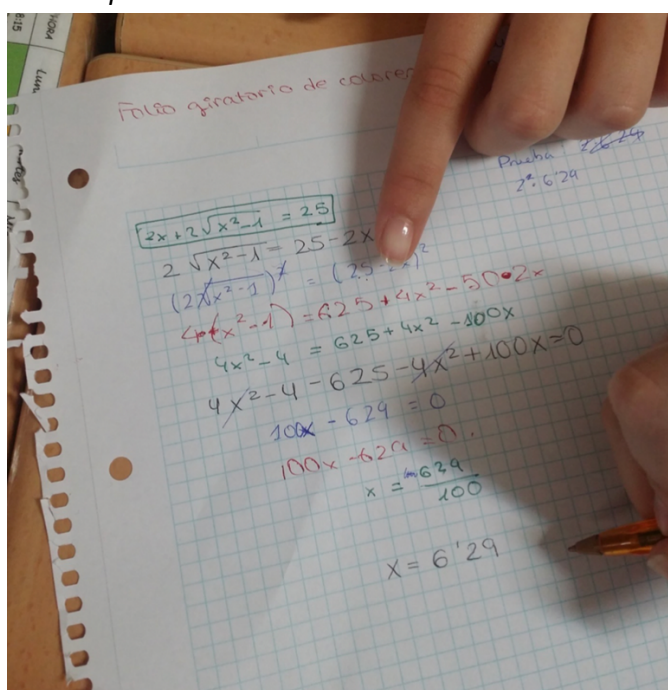 8:15
HORA
Lun
Folio giratorio de colores
Prueba
2ª: 6'29
2x + 2√x²-1 = 25
2√x²-1 = 25-2x
(2√x²-1)² = (25-2x)²
4·(x²-1) = 625 + 4x² - 50·2x
4x²-4 = 625+4x² -100x
4x²-4-625-4x²+100x=0
100x - 629 = 0
100x -629 = 0.
x = 629/100
x = 6'29